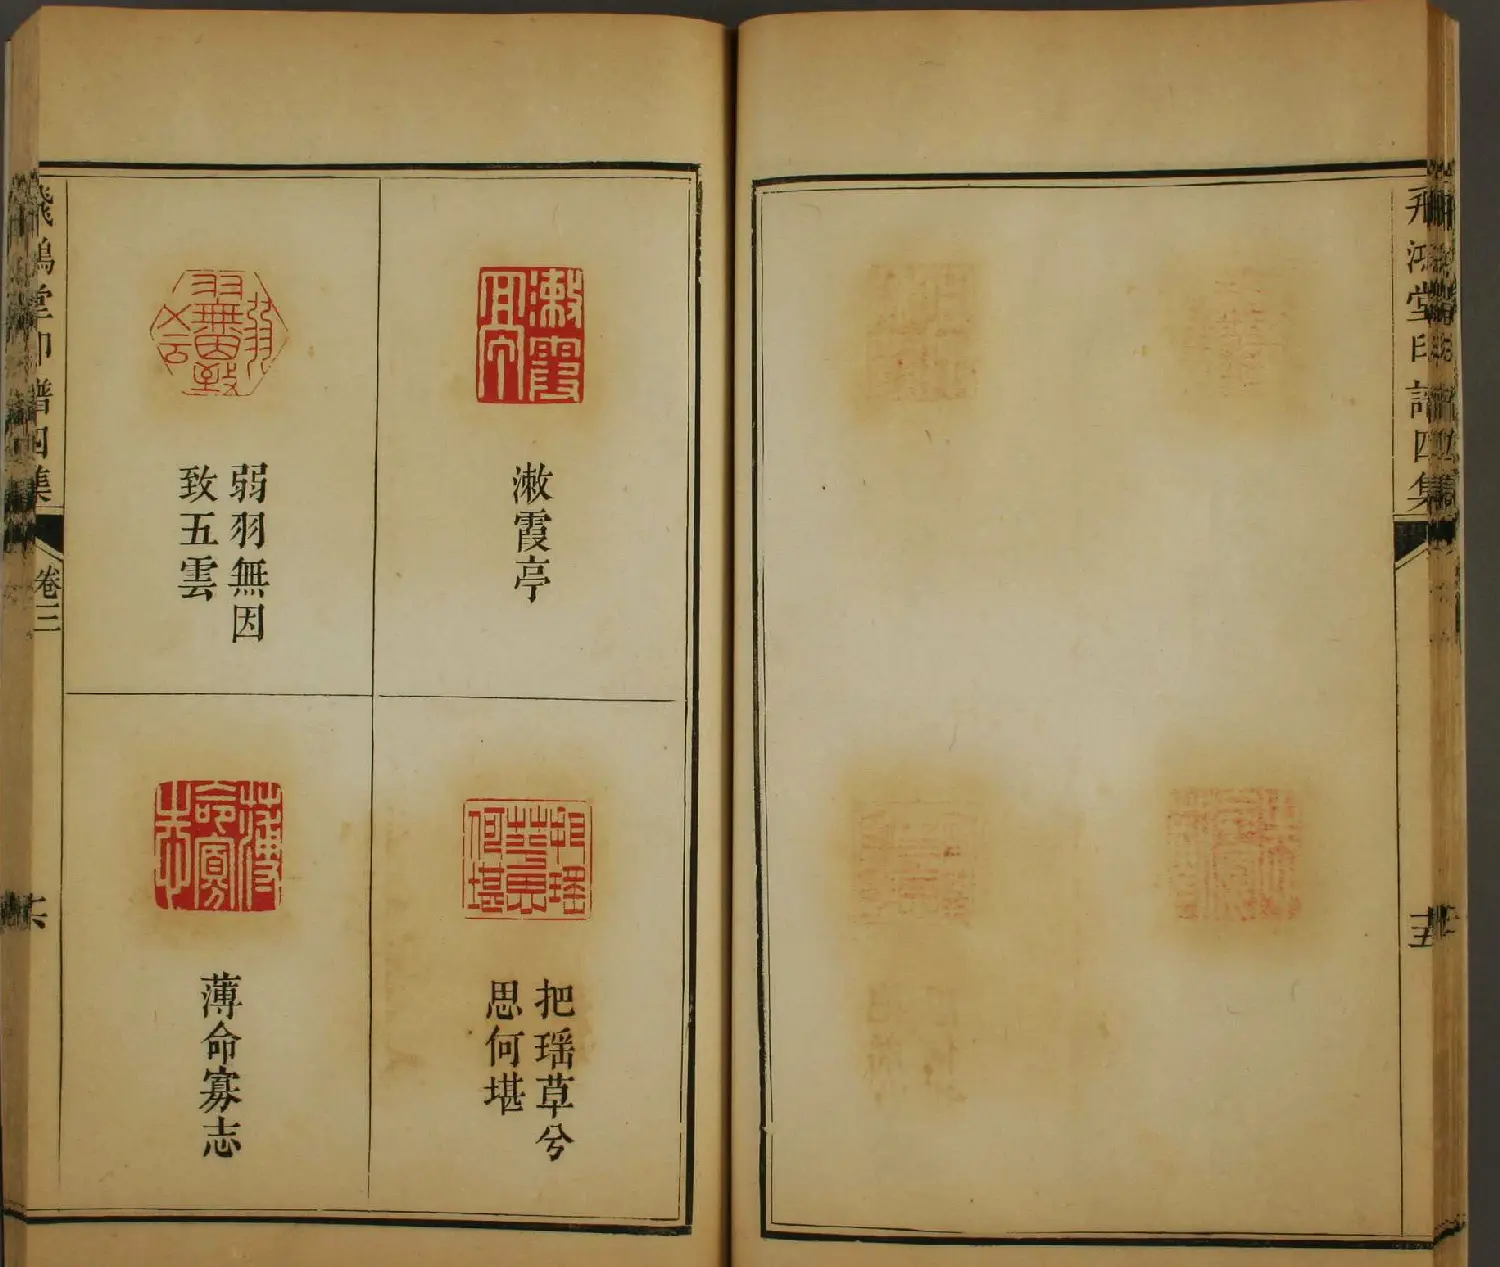 飛鴻堂印譜四集
十五
潄霞亭
弱羽無因
致五雲
把瑶草兮
思何堪
薄命寡志
飛鴻堂印譜四集
卷三